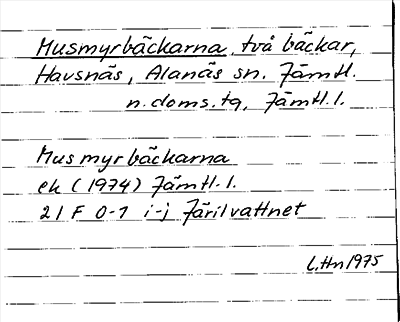 Musmyrbäckarna, två bäckar,
Havsnäs, Alanäs sn. Jämtl.
n. doms. tg, Jämtl. l.
Musmyrbäckarna
ek (1974) Jämtl. l.
21 F 0-1 i-j Järilvattnet
L.Hn 1975